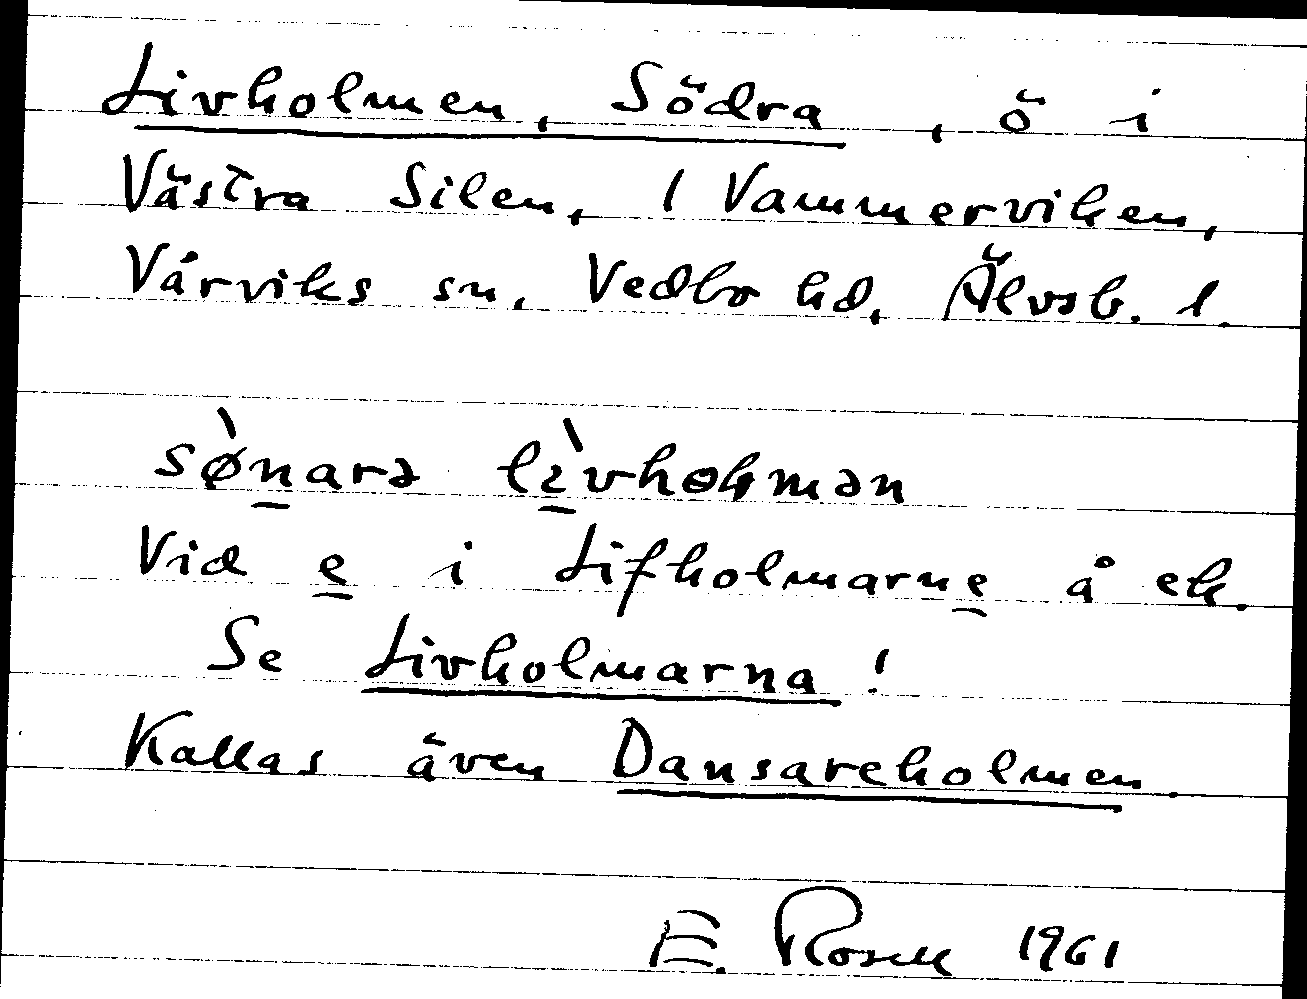 Livholmen, Södra, ö i
Västra Silen, / Vammerviken,
Vårviks sn, Vedbo hd, Älvsb. l.
sø̀narə lìvhoḷmən
Vid e i Lifholmarne å ek.
Se Livholmarna!
Kallas även Dansareholmen.
E. Rosell 1961